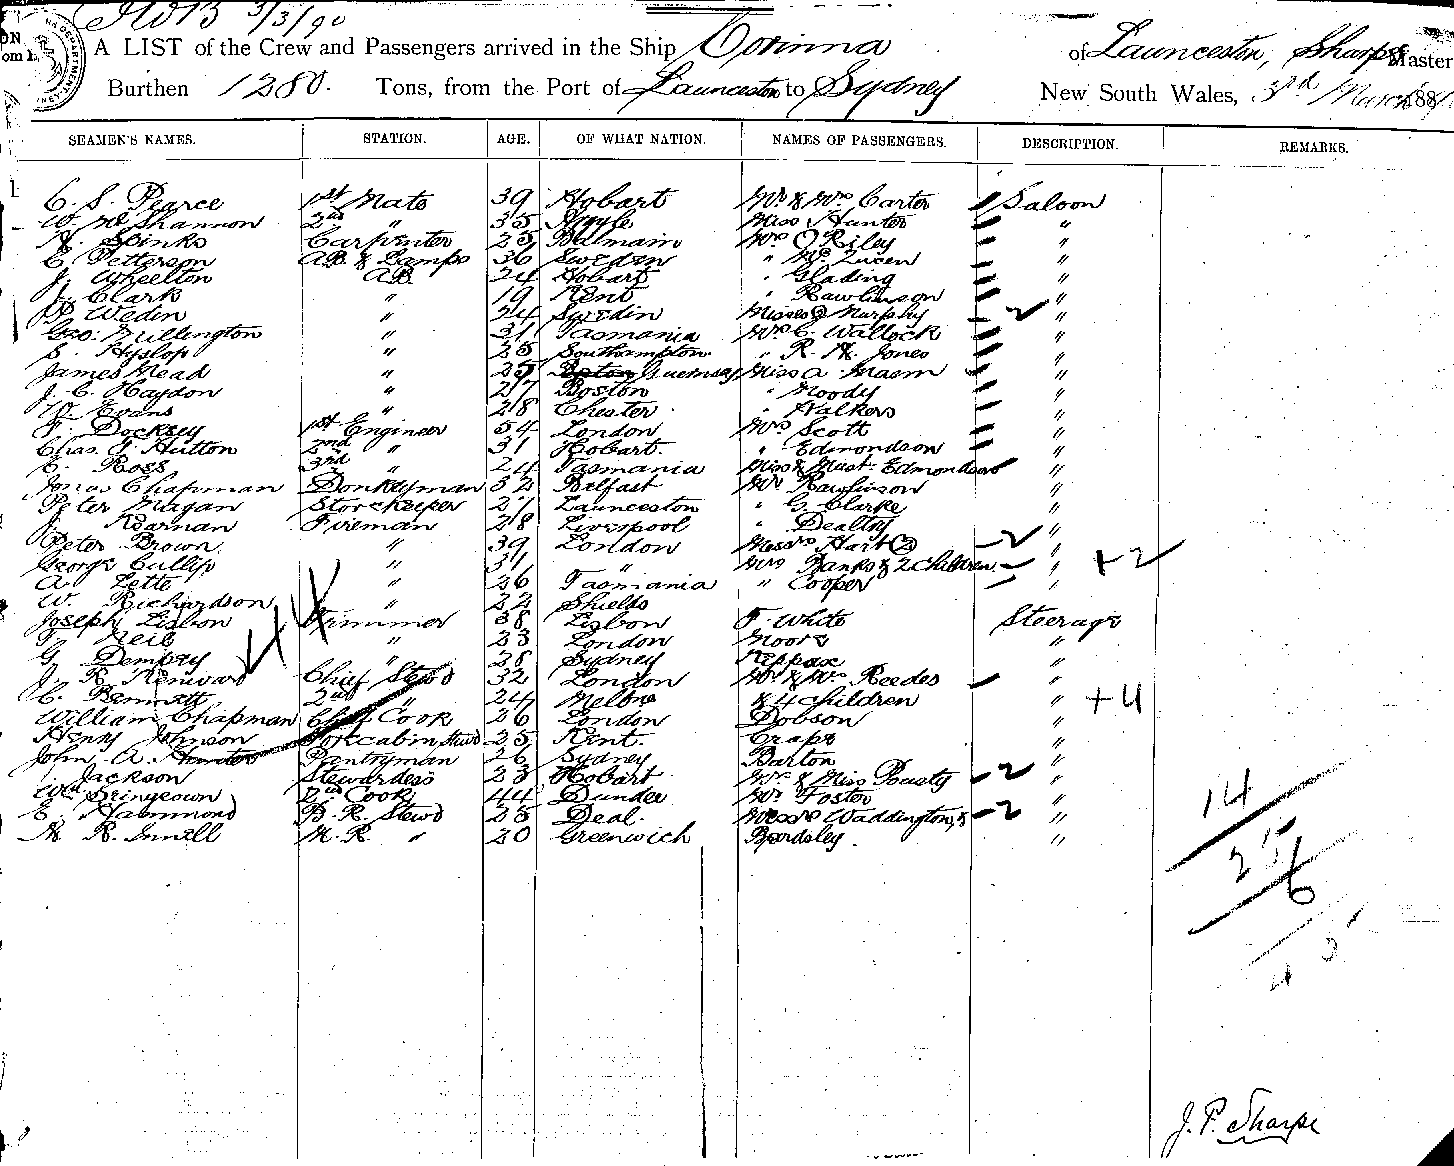 3/3/90
A LIST of the Crew and Passengers arrived in the Ship Corinna of Launceston, Sharpe Master
Burthen 1280. Tons, from the Port of Launceston to Sydney New South Wales, 3rd March 188
SEAMEN'S NAMES. STATION. AGE. OF WHAT NATION. NAMES OF PASSENGERS. DESCRIPTION. REMARKS.
C. S. Pearce 1st Mate 39 Hobart Mr & Mrs Carter Saloon
W. McShannon 2nd " 35 Argyle Miss Hunter "
H. Spinks Carpenter 25 Balmain Mrs O'Riley "
C. Petterson AB & Lamps 36 Sweden " McQueen "
J. Wheelton AB 24 Hobart " Glading "
J. Clark " 19 Kent " Rawlinson "
Weden " 24 Swedin Misses 2 Murphy 2 "
Geo. Millington " 31 Tasmania Mr C. Wallock "
S. Hyslop " 25 Southampton " R. H. Jones "
James Mead " 25 Guernsey Miss A Mason "
J. C. Haydon " 27 Boston " Moody "
W. Evans " 28 Chester " Walkers "
F. Dockrey 1st Engineer 54 London Mrs Scott "
Chas. F. Hutton 2nd " 31 Hobart. " Edmondson "
C. Ross 3rd " 24 Tasmania Miss & Mast. Edmondson "
Jonas Chapman Donkeyman 32 Belfast Mr Rawlinson "
Peter Magan Storekeeper 27 Launceston " G. Clarke "
J. Kearnan Fireman 28 Liverpool " Dealtry "
Peter Brown " 39 London Messrs Hart 2 2 "
George Cullip " 31 " Mrs Banks & 2 children " +2
A. Lette " 26 Tasmania " Cooper "
W. Richardson " 22 Shields
Joseph Lisbon Trimmer 38 Lisbon F. White Steerage
F. Neil " 23 London Moore "
G. Dempsey " 28 Sydney Keppax "
J. R. Kenward Chief Stewd 32 London Mr & Mrs Reedes "
C. Bennett 2nd " 24 Melbne & 4 children " +4
William Chapman Chief Cook 26 London Dobson "
Henry Johnson Forecabin Stewd 25 Kent. Crape "
John A. Hunter Pantryman 26 Sydney Barton "
Jackson Stewardess 23 Hobart Mr & Miss Pousty 2 "
Wm Springeown 2nd Cook 44 Dundee Mr Foster "
E. Hammond B. R. Stewd 25 Deal. Messrs Waddington, & 2 "
H. R. Innell M. R. " 20 Greenwich Beardsley "
44
14
25
6
45
J. P. Sharpe